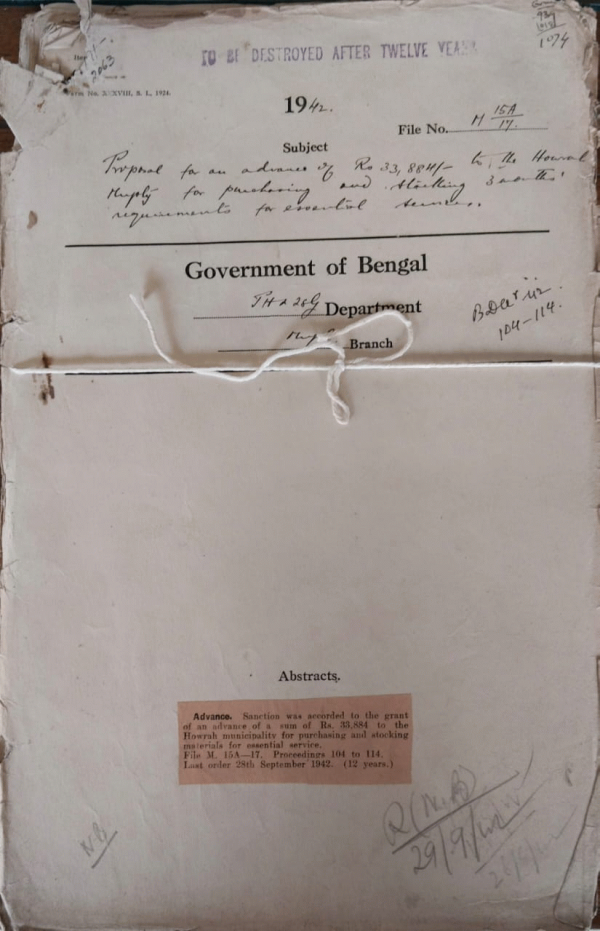 TO BE DESTROYED AFTER TWELVE YEARS
2063
Form No. XXXVIII, S. I., 1924.
1074
1942.
File No. M 15A/17.
Subject
Proposal for an advance of Rs 33,884/- to the Howrah
Muply for purchasing and stocking 3 months'
requirements for essential services.
Government of Bengal
PH & LSG Department
Branch
B Decr '42
104-114.
Abstracts.
Advance. Sanction was accorded to the grant
of an advance of a sum of Rs. 33,884 to the
Howrah municipality for purchasing and stocking
materials for essential service.
File M. 15A—17. Proceedings 104 to 114.
Last order 28th September 1942. (12 years.)
29/9/